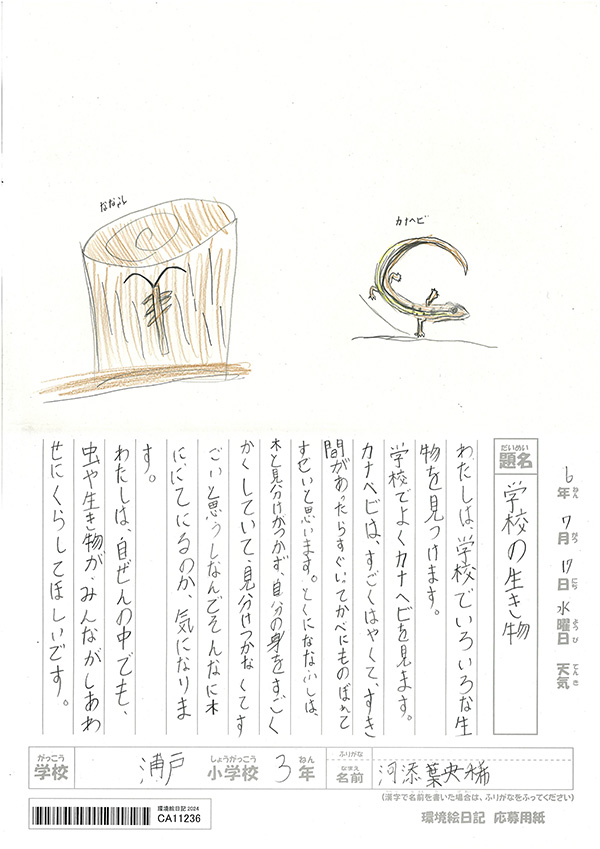 ななふし
カナヘビ
6年ねん 7月がつ 17日にち 水曜日ようび 天気てんき
だいめい
題名
学校の生き物
わたしは、学校でいろいろな生
物を見つけます。
学校でよくカナヘビを見ます。
カナヘビは、すごくはやくて、すき
間があったらすぐいてかべにものぼれて
すごいと思います。とくにななふしは、
木と見分けがつかず、自分の身をすごく
かくしていて、見分けつかなくてす
ごいと思うしなんでそんなに木
ににてにるのか、気になりま
す。
わたしは、自ぜんの中でも、
虫や生き物が、みんながしあわ
せにくらしてほしいです。
がっこう
学校
浦戸
しょうがっこう
小学校
3年ねん
ふりがな
なまえ
名前
河添葉央稀
(漢字で名前を書いた場合は、ふりがなをふってください)
環境絵日記 2024
CA11236
環境絵日記 応募用紙